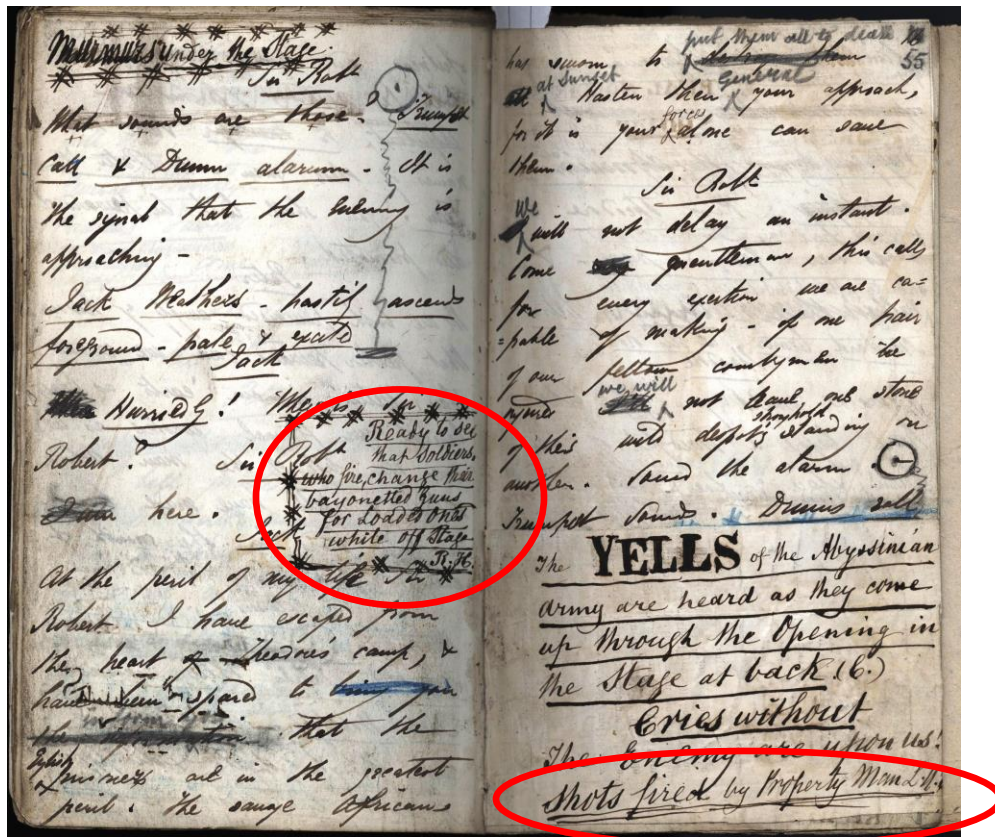 Murmurs under the Stage.
Sir Robt
What sounds are those. Trumpet
Call & Drum alarum - It is
the signal that the Enemy is
approaching -
Jack Weathers - hastily ascends
foreground - pale & excited
Jack
Hurriedly! Where's Sir
Robert?
Sir Robt
here.
Jack
Ready to see
that Soldiers,
who fire, change their
bayonetted Guns
for Loaded ones
while off Stage
R.H.
At the peril of my life Sir
Robert I have escaped from
the heart of Theodore's camp, &
have been spared to
inform you that the
English prisoners are in the greatest
peril. The savage Africans
55
has sworn to put them all to death
at Sunset Hasten then General your approach,
for it is your forces alone can save
them.
Sir Robt
We will not delay an instant.
Come gentlemen, this calls
for every exertion we are ca=
=pable of making - if one hair
of our fellow countrymen be
injured we will not leave one stone
of this wild despot's stronghold standing on
another. Sound the alarm.
Trumpet Sounds. Drums roll
The YELLS of the Abyssinian
army are heard as they come
up through the Opening in
the Stage at back (C.)
Cries without
The Enemy are upon us!
Shots fired by Property Man L.H.